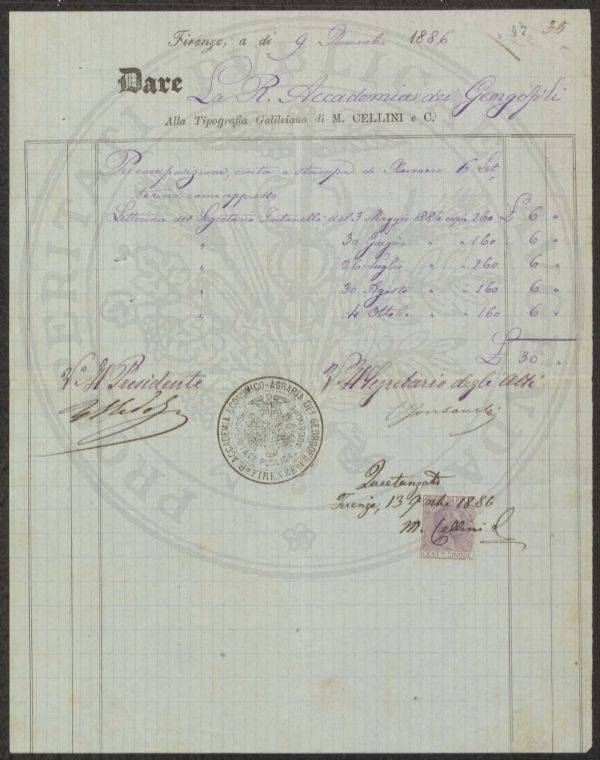 47. 35
Firenze, a dì 9 Novembre 1886
Dare La R. Accademia dei Georgofili
Alla Tipografia Galileiana di M. CELLINI e C.i
Per composizione, carta e stampa di Numero 6 Let
terine come appresso
Letterina del Segretario Fontanelli del 3 Maggio 1886 copie 160 £ 6 „
„ 30 Giugno „ „ 160 . 6 „
„ 26 Luglio „ „ 160 . 6 „
„ 30 Agosto „ „ 160 6 „
„ 4 Ottobre „ 160 6 „
£ 30 „
V° Il Presidente
V° Il Segretario degli Atti
R. ACCADEMIA ECONOMICO-AGRARIA DEI GEORGOFILI
FIRENZE
Quietanzato
Firenze, 13 9mbre 1886
M. Cellini
CENT.MI CINQUE